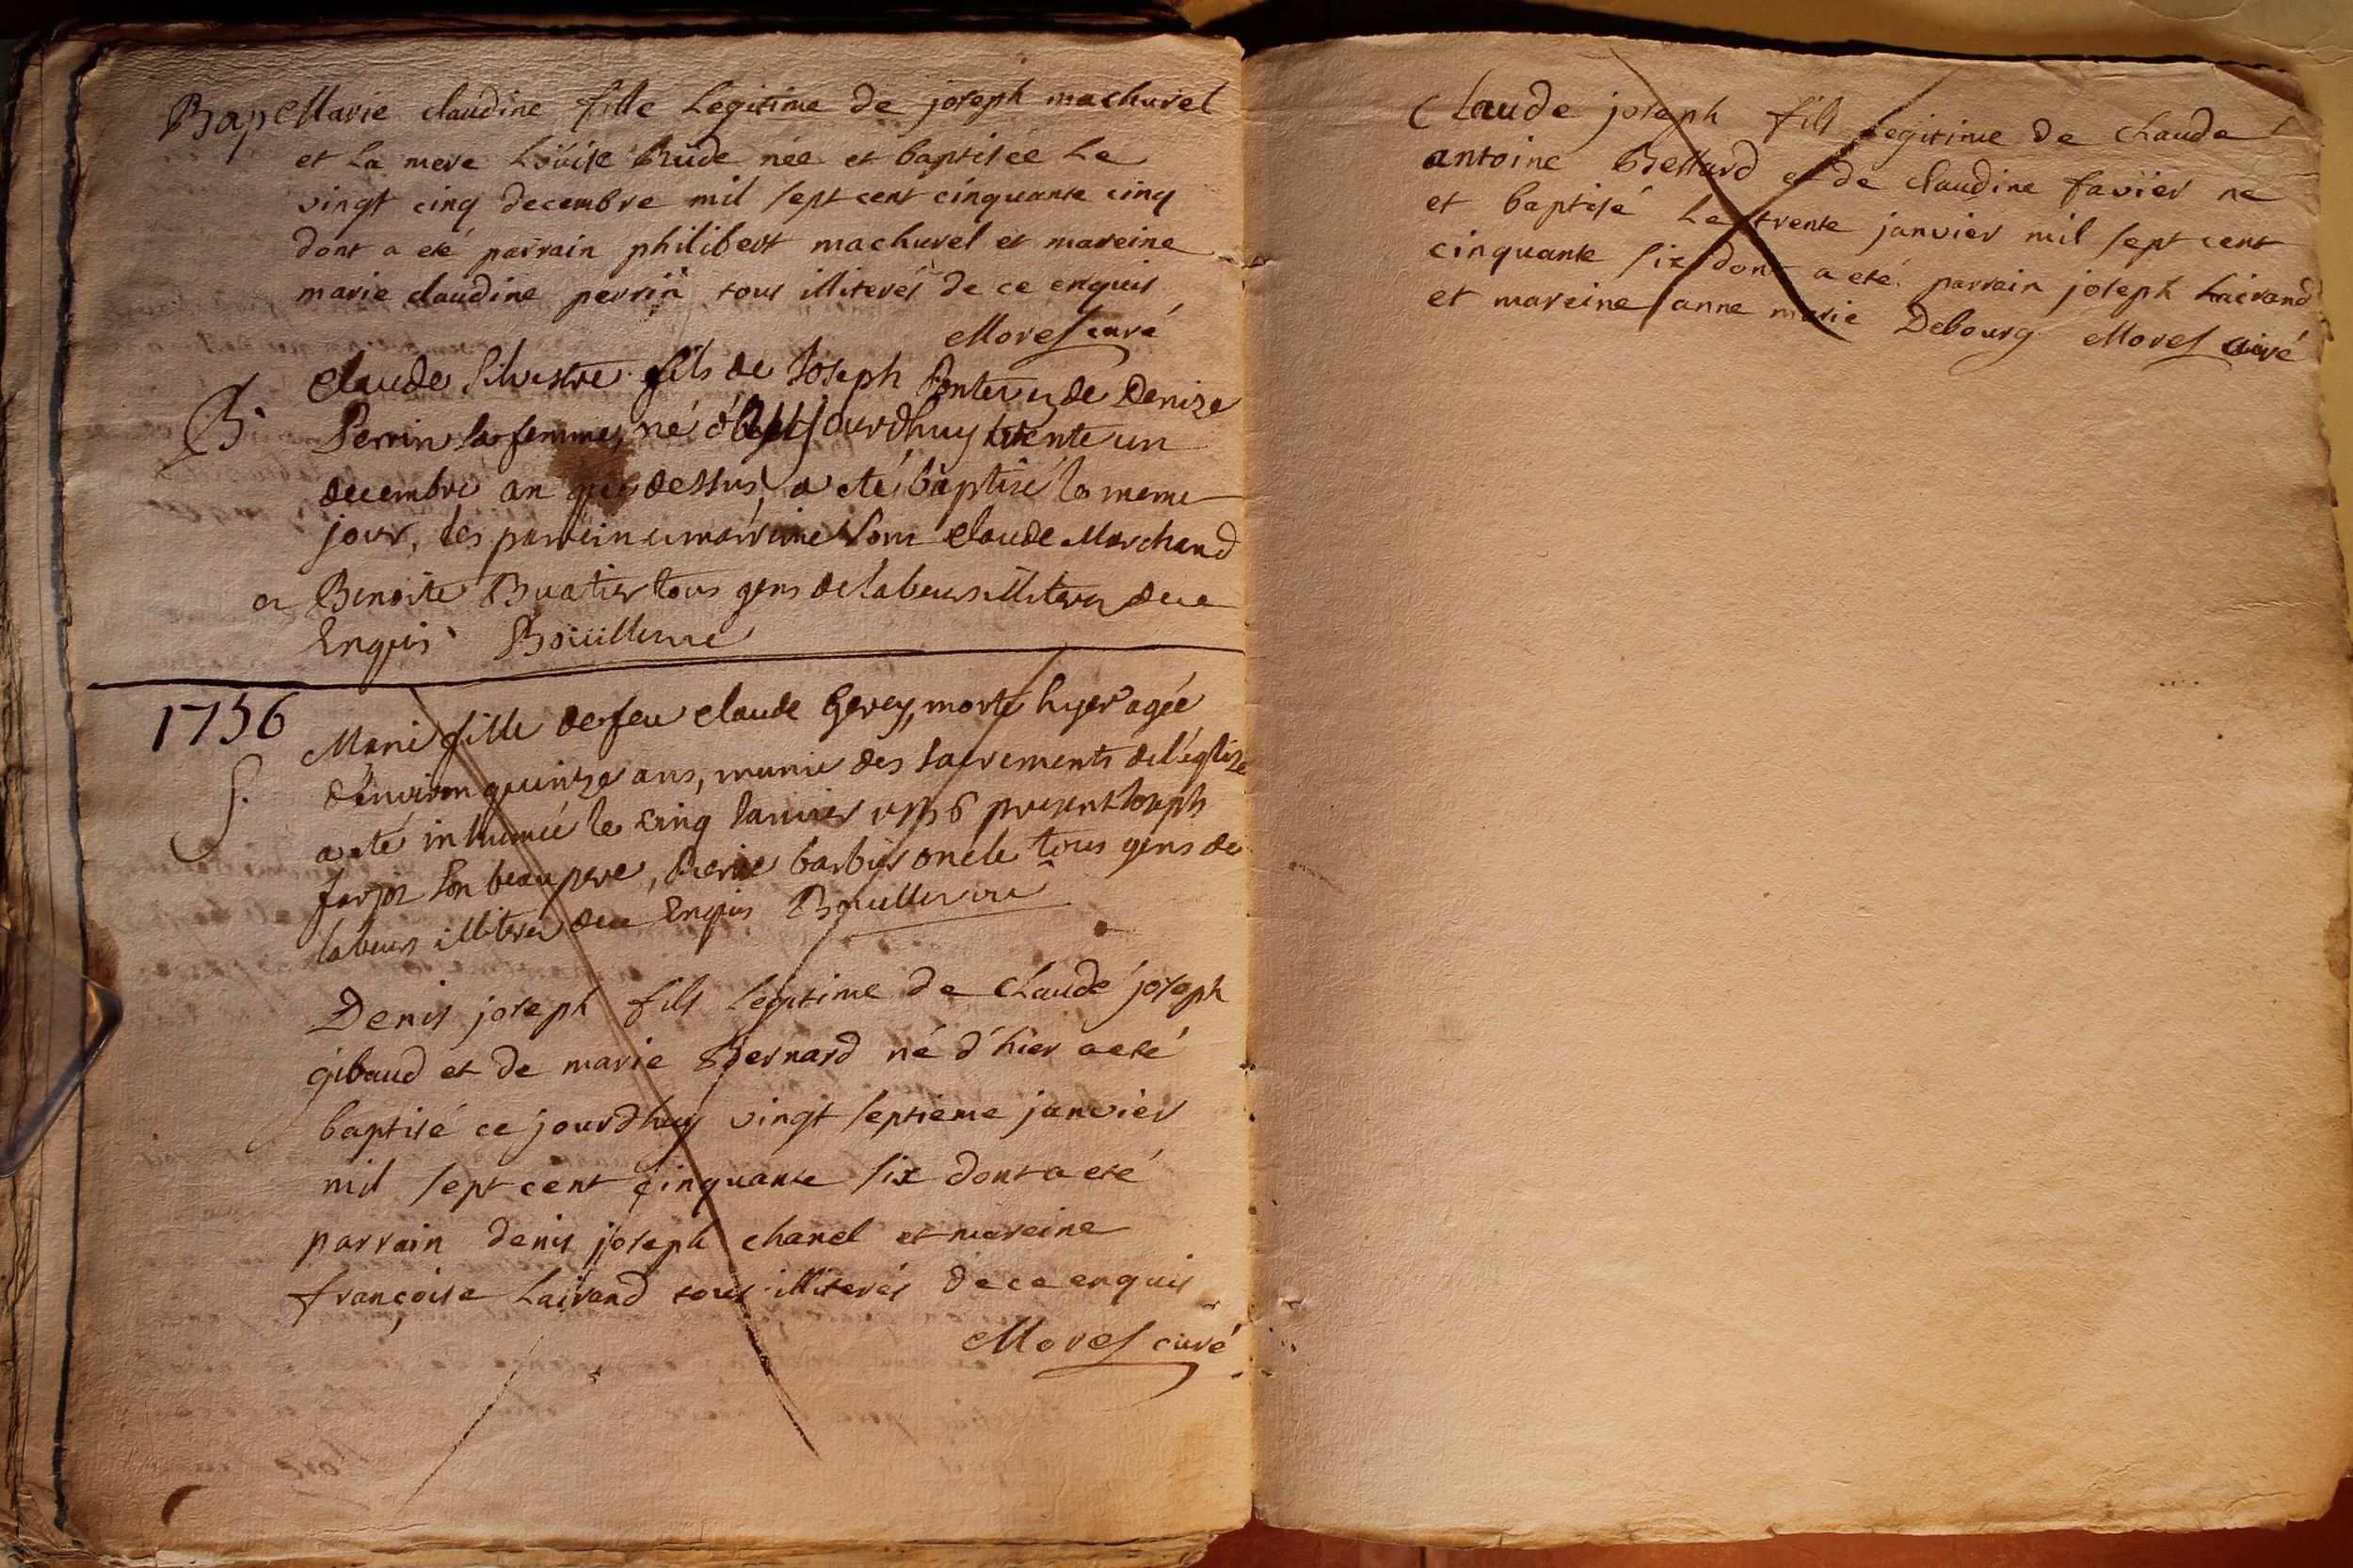 Bap Marie claudine fille Legitime de joseph machurel
et La mere Loüise Rude née et baptisée Le
vingt cinq decembre mil sept cent cinquante cinq
dont a eté parrain philibert machurel et mareine
marie claudine perrin tous illiterés de ce enquis
Morel curé
B. Claude Silvestre fils de Joseph Ponter et de Denize
Perrin sa femme, né jourdhuy trente un
decembre an que dessus, a eté baptisé le meme
jour, les parrein et marreine sont Claude Marchand
et Benoite Buatier tous gens de labeurs illiterez de ce
Enquis Boüillerme
1756
S. Marie fille de feu Claude Gerey, morte hyer agée
d'environ quinze ans, munie des sacrements de l'église
a eté inhumée le cinq Janvier 1756 present Joseph
farjoz son beau pere, Pierre barbier oncle tous gens de
labeurs illiterez de ce Enquis
Denis joseph fils Legitime de Claude joseph
gibaud et de marie Bernard né d'hier a eté
baptisé ce jourdhuy vingt septieme janvier
mil sept cent cinquante six dont a eté
parrain denis joseph chanel et mareine
françoise Lairand tous illiterés de ce enquis
Morel curé
Claude joseph fils Legitime de Claude
antoine Bellard et de claudine favier ne
et baptisé Le trente janvier mil sept cent
cinquante six dont a eté parrain joseph Lairand
et mareine anne marie Debourg Morel curé